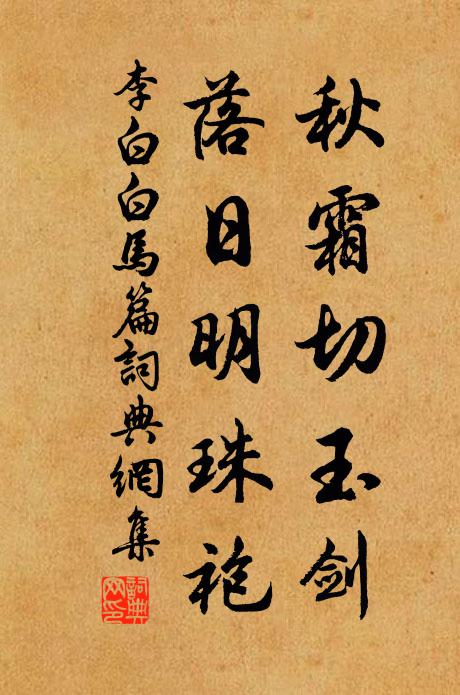 秋霜切玉剑
落日明珠袍
李白白馬篇詞典網集
詞典
网印